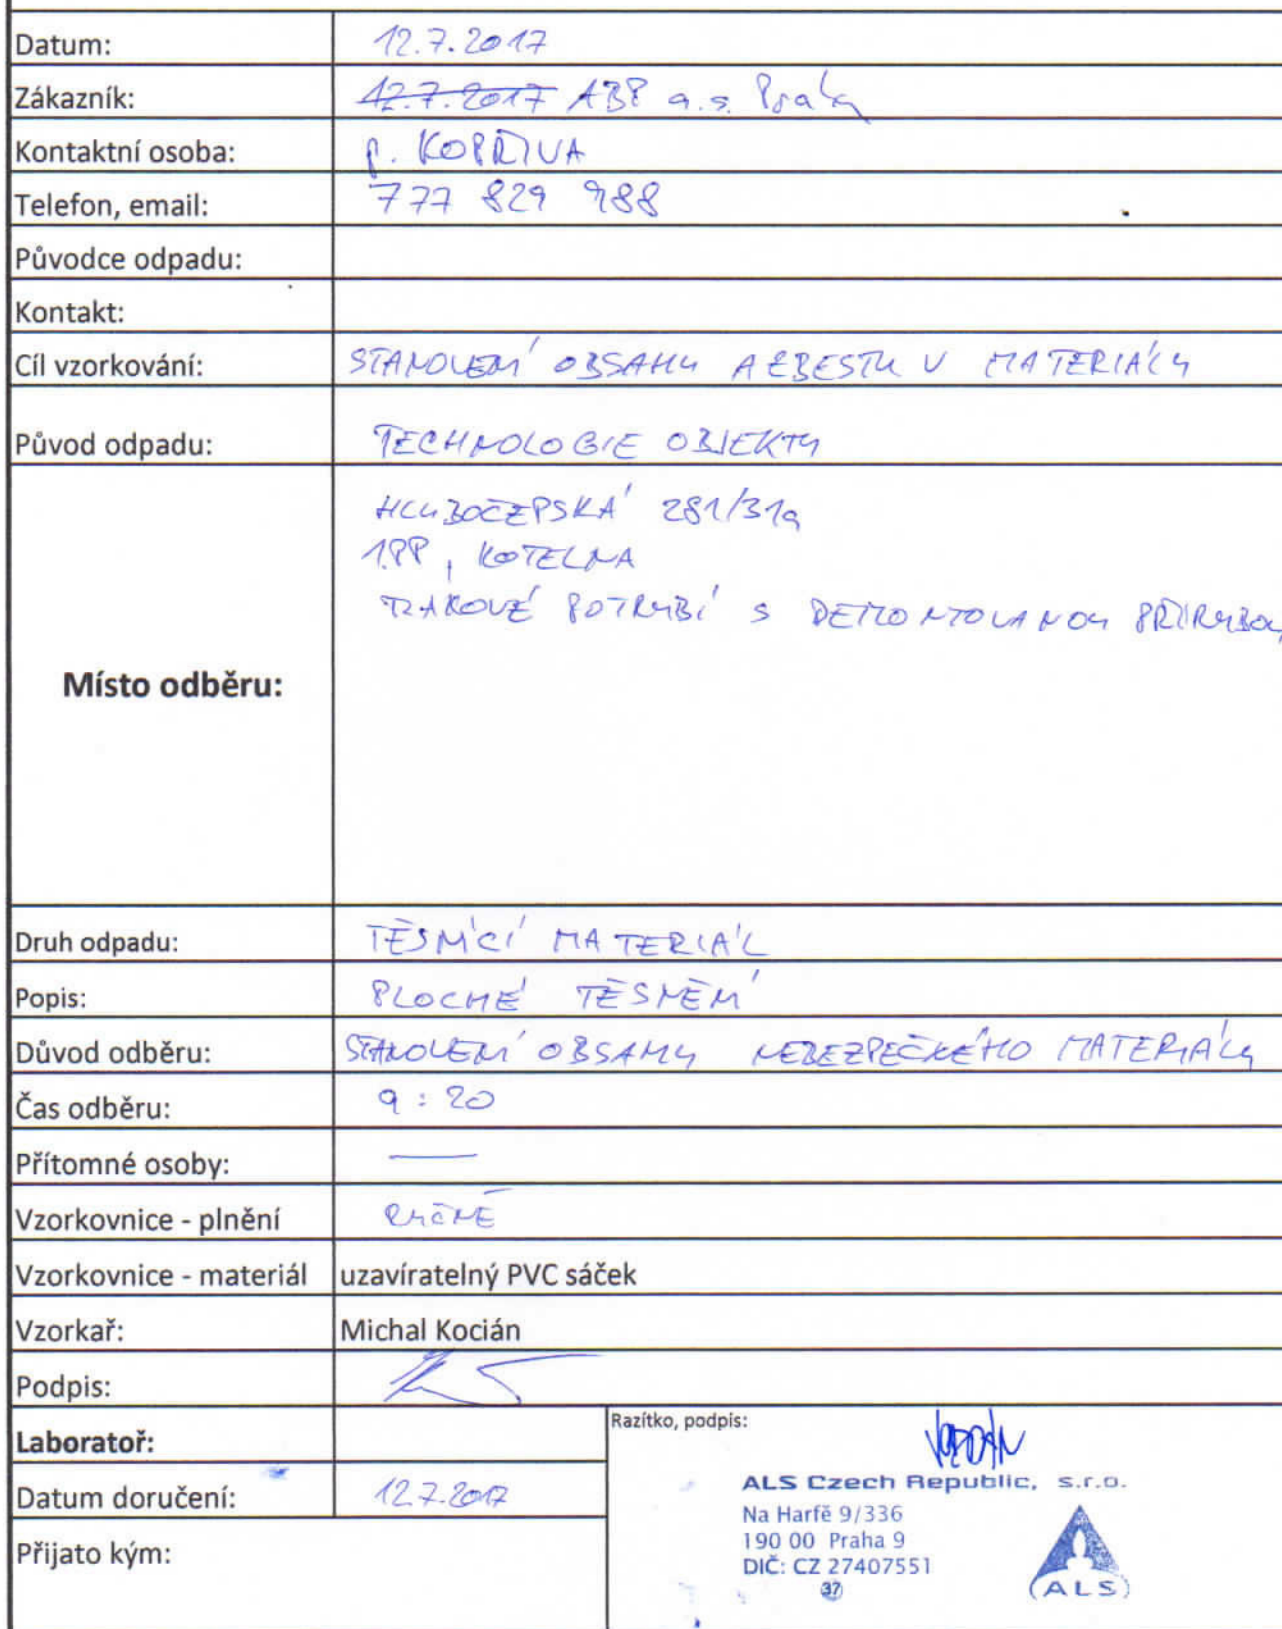 Datum: 12.7.2017
Zákazník: 12.7.2017 ABP a.s. Praha
Kontaktní osoba: p. KOPŘIVA
Telefon, email: 777 829 988
Původce odpadu:
Kontakt:
Cíl vzorkování: STANOVENÍ OBSAHU AZBESTU V MATERIÁLU
Původ odpadu: TECHNOLOGIE OBJEKTU
HLUBOČEPSKÁ 281/31a
1.PP, KOTELNA
POTRUBÍ S DEMONTOVANOU PŘÍRUBOU
Místo odběru:
Druh odpadu: TĚSNÍCÍ MATERIÁL
Popis: PLOCHÉ TĚSNĚNÍ
Důvod odběru: STANOVENÍ OBSAHU NEBEZPEČNÉHO MATERIÁLU
Čas odběru: 9:20
Přítomné osoby: —
Vzorkovnice - plnění RUČNĚ
Vzorkovnice - materiál uzavíratelný PVC sáček
Vzorkař: Michal Kocián
Podpis:
Laboratoř:
Razítko, podpis:
Datum doručení: 12.7.2017
Přijato kým:
ALS Czech Republic, s.r.o.
Na Harfě 9/336
190 00 Praha 9
DIČ: CZ 27407551
37
ALS